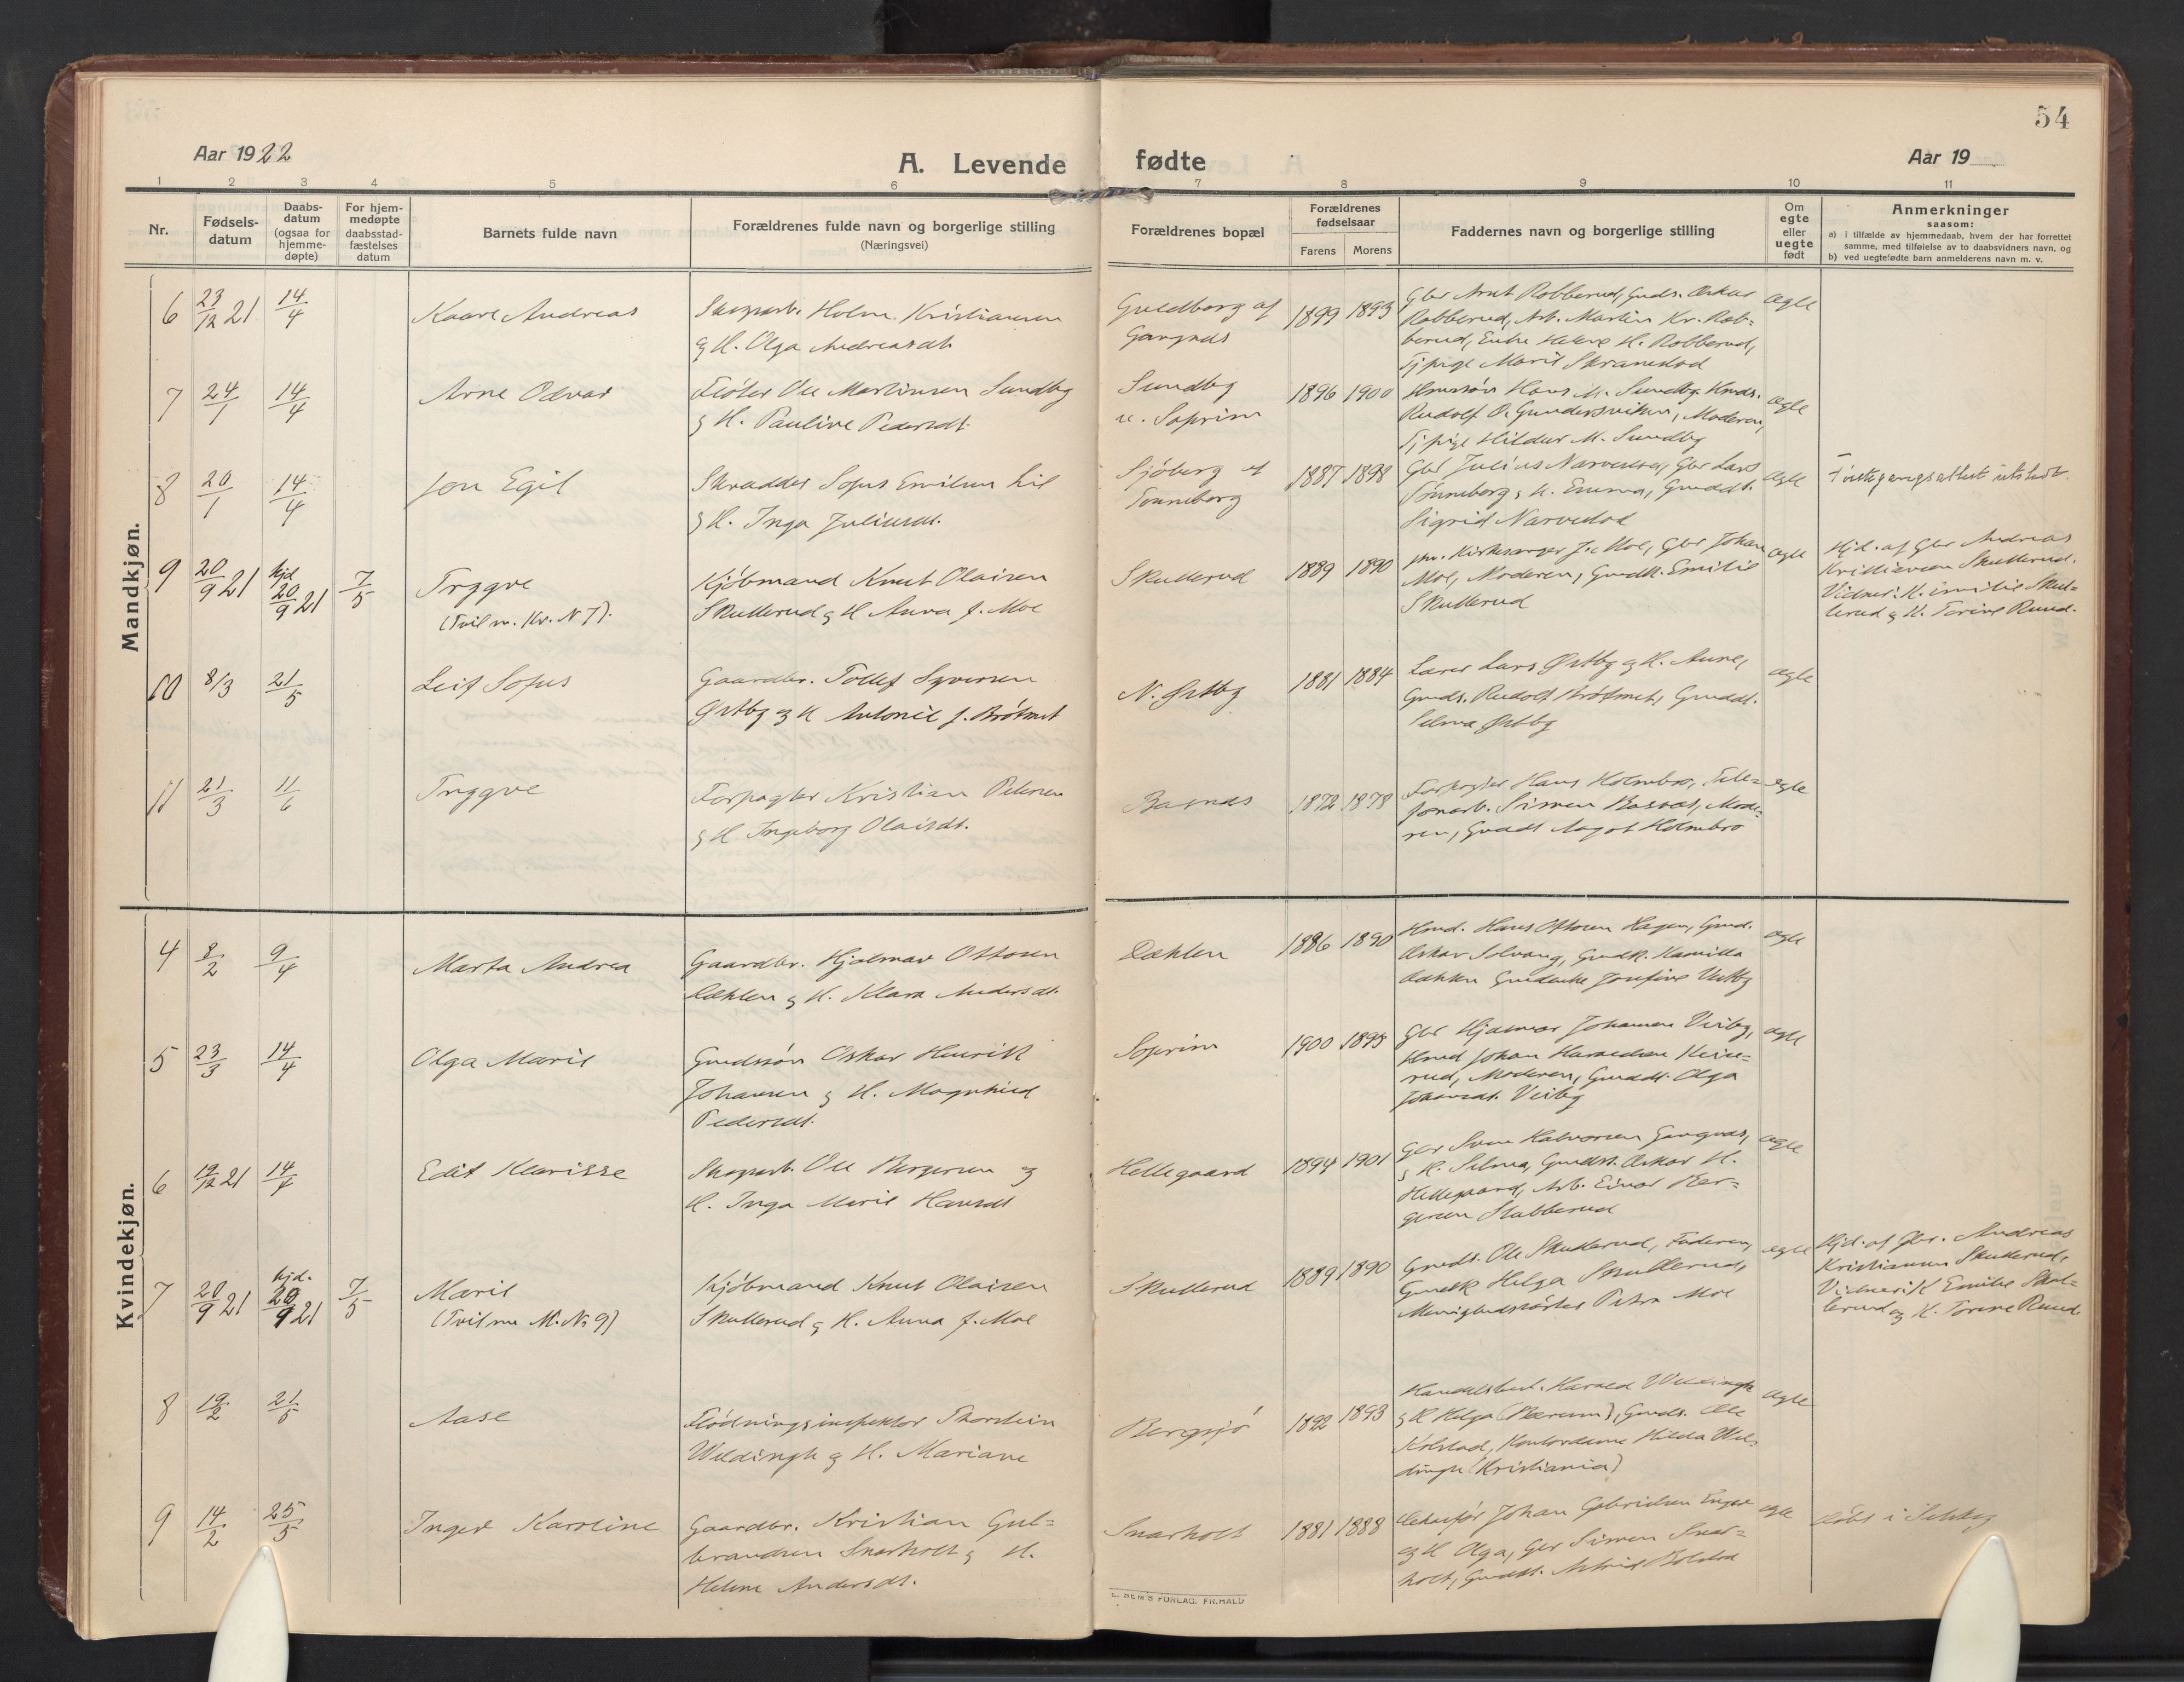 54
Aar 1922
A. Levende fødte
Aar 19
1 2 3 4 5 6 7 8 9 10 11
Nr.
Fødsels-
datum
Daabs-
datum
(ogsaa for
hjemme-
døpte)
For hjem-
medøpte
daabsstad-
fæstelses
datum
Barnets fulde navn
Forældrenes fulde navn og borgerlige stilling
(Næringsvei)
Forældrenes bopæl
Forældrenes
fødselsaar
Farens Morens
Faddernes navn og borgerlige stilling
Om
egte
eller
uegte
født
Anmerkninger
saasom:
a) i tilfælde av hjemmedaab, hvem der har forrettet
samme, med tilføielse av to daabsvidners navn, og
b) ved uegtefødte barn anmelderens navn m. v.
Mandkjøn.
6 23/12 21 14/4 Kaare Andreas
Skogsarb. Holm Kristiansen
og H. Olga Andreasdt.
Guldborg af
1899 1893
Gbr Arnt Robberud, Gmds. Oskar
Robberud, Arb. Martin Kr. Rob=
berud, Enke Helene H. Robberud,
Tjpige Marie
Ægte
7 24/1 14/4 Arne Odvar
Fløter Ole Martinsen Sundby
og H. Pauline Pedersdt.
Sundby
u. Soprim
1896 1900
Hans M. Sundby,
Rudolf O. Moderen,
Tjpige Hildur M. Sundby
Ægte
8 20/1 14/4 Jon Egil
Skrædder Sofus Emilsen Lie
og H. Inga Juliusdt.
Sjøberg af
Tonneborg
1887 1898
Gbr Julius Narvesen, Gbr Lars
Sønneborg og H. Emma, Gmddt.
Sigrid Narvestad
Ægte
9 20/9 21 hjd 20/9 21 7/5 Trygve
(Tvil m. Kv. N 7).
Kjøbmand Knut Olaisen
Skullerud og H Anna f. Moe
Skullerud
1889 1890
Kirkesanger J. Moe, Gbr Johan
Moe, Moderen, Gmdk. Emilie
Skullerud
Ægte
Hjd. af Gbr Andreas
Kristiansen Skullerud.
Vidner: H. Emilie Skul=
lerud og H. Torine Ruud.
10 8/3 21/5 Leif Sofus
Gaardbr. Tollef Syversen
Østby og H Antonie f. Brøtmet
N. Østby
1881 1884
Lærer Lars Østby og H. Anne,
Gmds. Rudolf Brøtmet, Gmddt.
Selma Østby
Ægte
11 21/3 11/6 Trygve
Forpagter Kristian Petersen
og H Ingeborg Olaisdt.
Basnæs
1872 1878
Forpagter Hans Holmbro, Tele=
fonarb. Simen Basnæs, Mode=
ren, Gmddt Aagot Holmbro
Ægte
Kvindekjøn.
4 8/2 9/4 Marta Andrea
Gaardbr. Hjalmar Ottosen
Dæhlen og H. Klara Andersdt.
Dæhlen
1886 1890
Hmd. Hans Ottosen Hagen, Gmd.
Oskar Solvang, Gmdk. Kamilla
Dæhlen Josefine
Ægte
5 23/3 14/4 Olga Marie
Gmdssøn Oskar Henrik
Johansen og H. Magnhild
Pedersdt.
Soprim
1900 1895
Gbr Hjalmar Johansen Viiby,
Johan
rud, Moderen, Gmddt. Olga
Johansdt. Viiby
Ægte
6 19/12 21 14/4 Edit Klarisse
Skogsarb. Ole Bergersen og
H. Inga Marie Hansdt
Hellegaard
1894 1901
Gbr Sven Halvorsen
og H. Selma, Gmds. Oskar H.
Hellegaard, Arb. Einar Ber=
gersen Stubberud
Ægte
7 20/9 21 hjd. 20/9 21 7/5 Marie
(Tvil m. M. N: 9)
Kjøbmand Knut Olaisen
Skullerud og H. Anna f. Moe
Skullerud
1889 1890
Gmds. Ole Skullerud, Faderen,
Gmdk Helga Skullerud,
Menighedssøster Petra Moe
Ægte
Hjd. af Gbr. Andreas
Kristiansen Skullerud,
Vidner: H Emilie Skul=
lerud og H. Torine Ruud.
8 19/2 21/5 Aase
Fløtningsinspektør Thorstein
Wildingh og H. Mariane
Bergsjø
1892 1893
Handelsbest. Harald Wildingh
og H Helga (Bærum), Gmds. Ole
Kolstad, Kontordame Hilda Wil=
dingh (Kristiania)
Ægte
9 14/2 25/5 Inger Karoline
Gaardbr. Kristian Gul=
brandsen Snarholt og H.
Helene Andersdt.
Snarholt
1881 1888
Johan Gabrielsen
og H Olga, Gbr Simen Snar=
holt, Gmddt. Astrid
Ægte
Døbt i
E. SEM'S FORLAG. FR.HALD